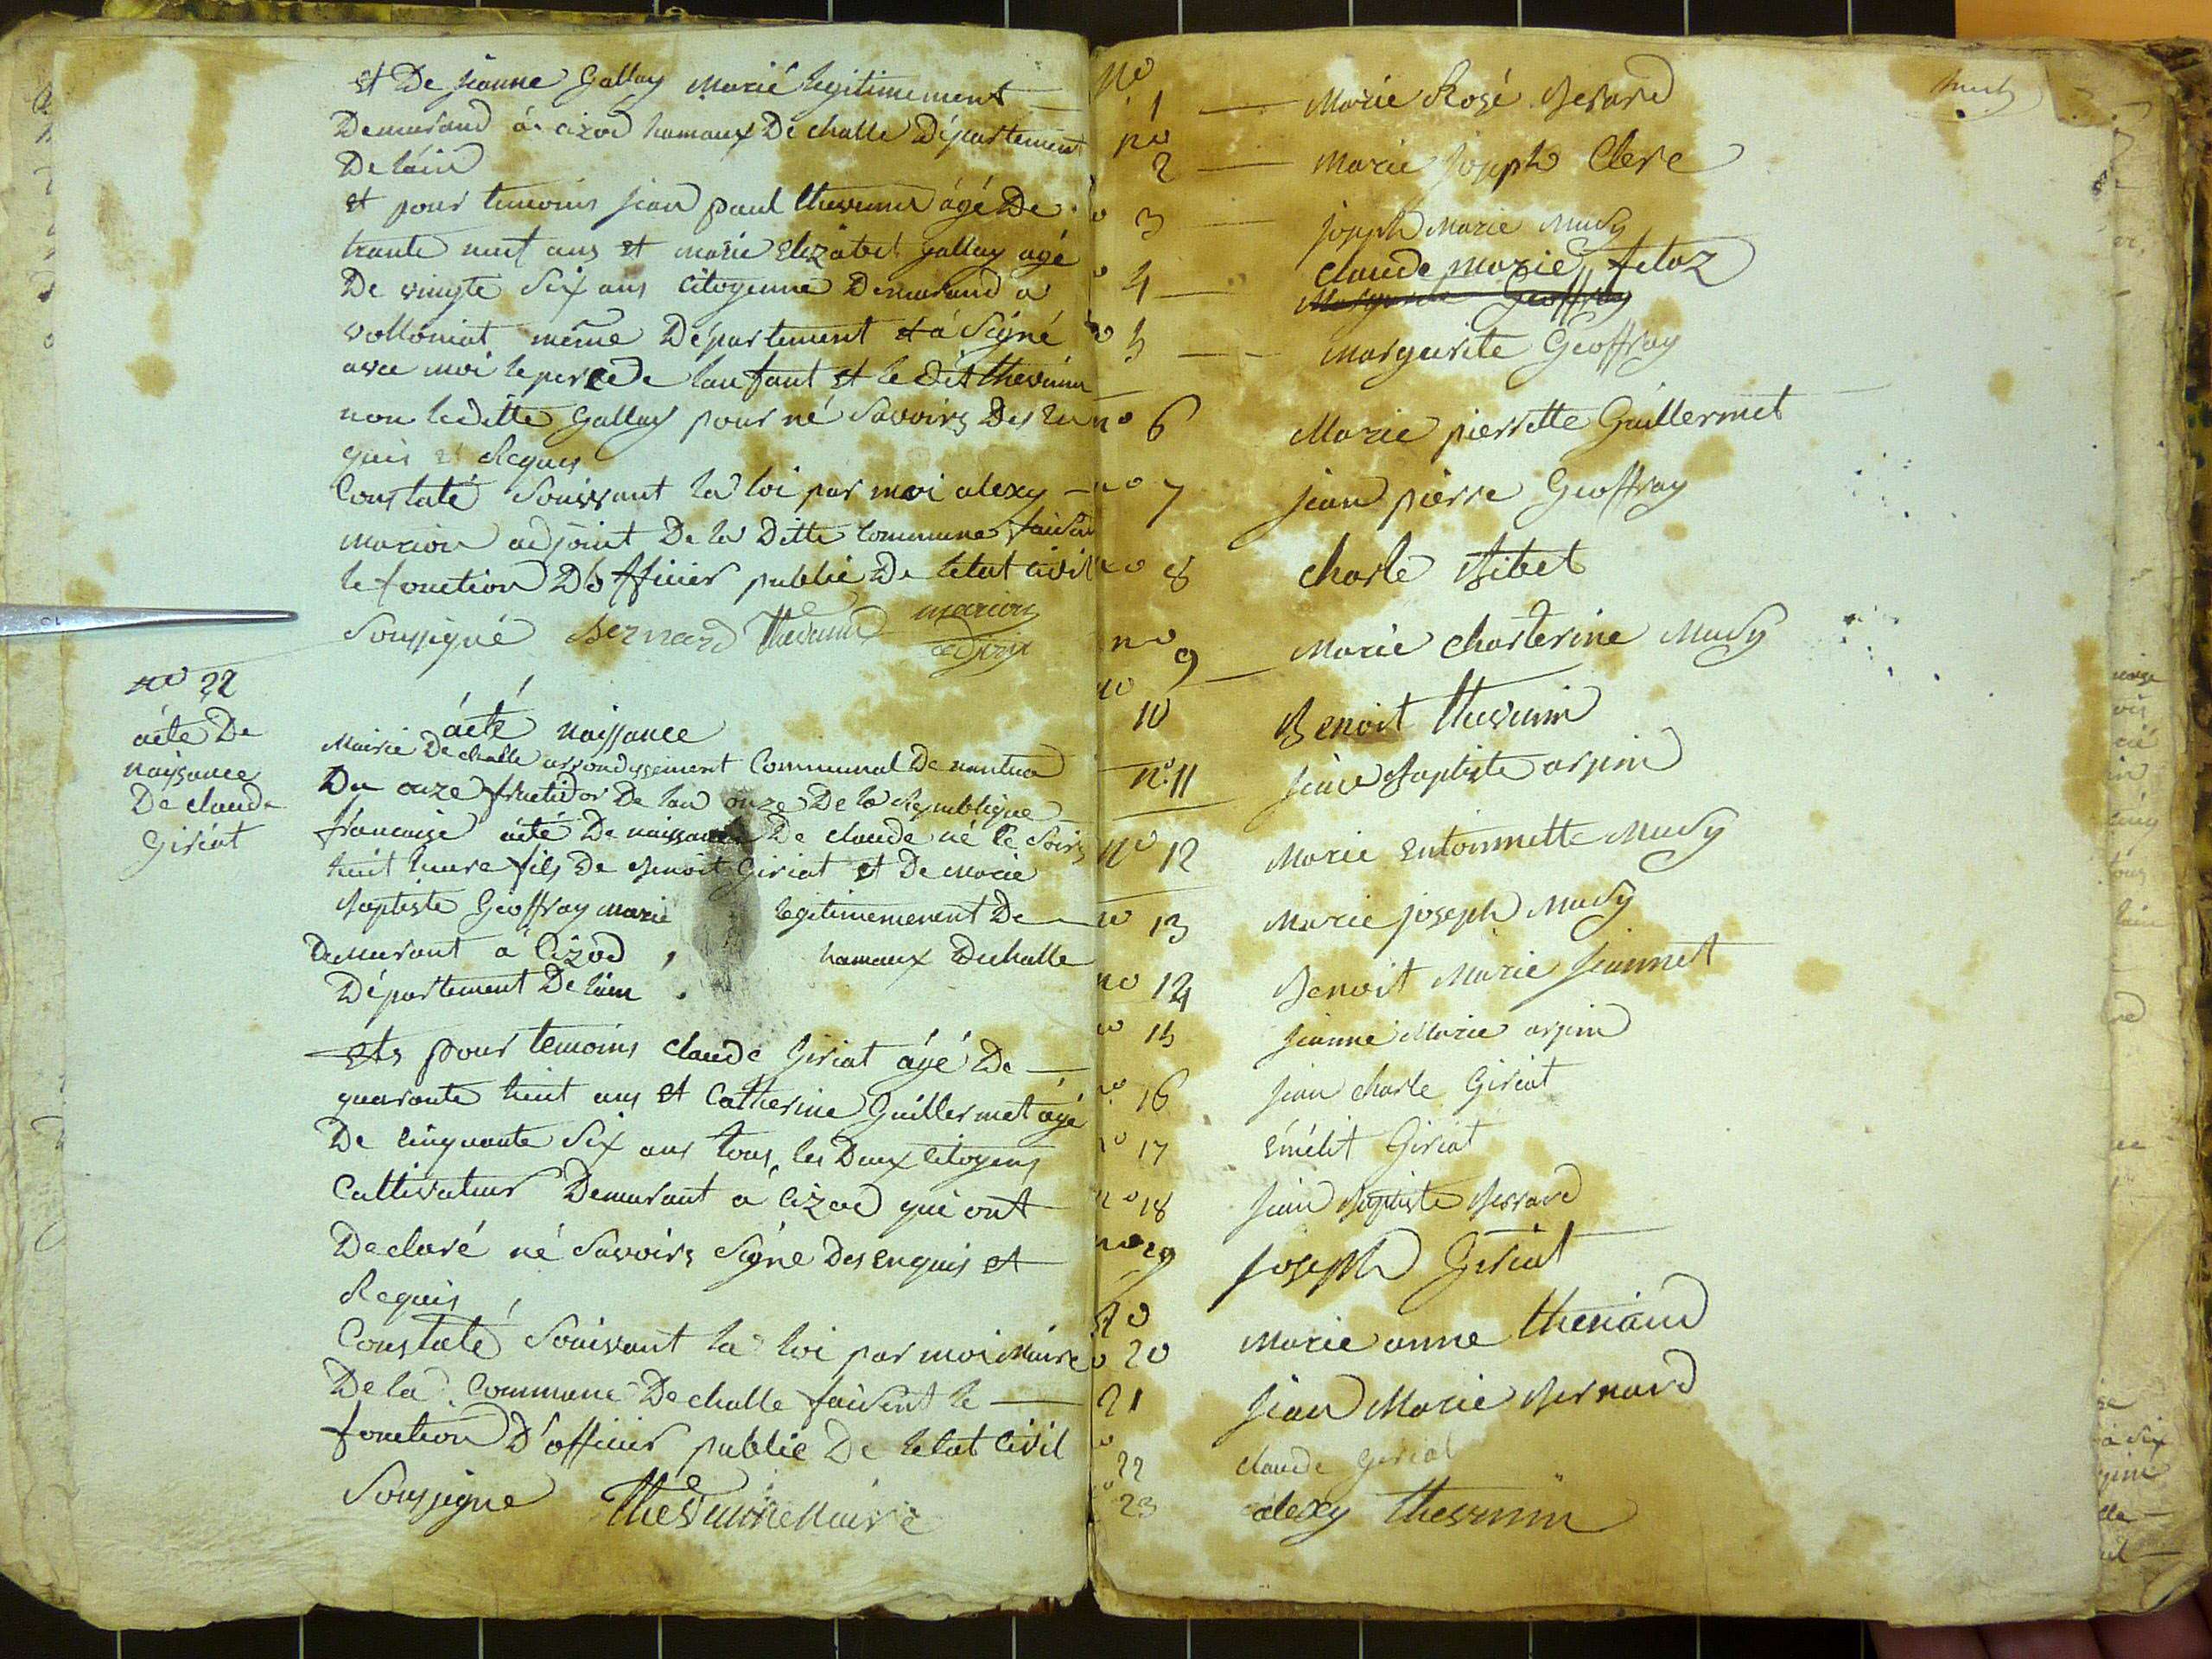 et De jeanne Gallay Marié legitimement
Demurand à cizod hamaux De challe Département
De lain
et pour temoins jean paul thevenin âgé De
trante neuf ans et marie Elizabet gallay agé
De vingte Six ans Citoyenne Demurand a
vollôniat même Département et a Signé
avec moi le pere de lanfant et le dit thevenin
non leditte Gallay pour né Savoirs Des en
quis et Requis
Constaté Souivant la loi par moi alexy
marion adjoint De la Ditte Commune faisan
le fonction D'officier public De letat civil
Soussigné Bernard Thevenin marion
adjoint
no 22
aite De
naissance
De claude
Giriat
acté naissance
Mairie De challe arrondissement Communal De nantua
Du onze fructidor De lan onze De la Republique
francaise acté De naissance De claude né le Soirs
huit heure fils De Benoit Giriat et De Marie
Baptiste Geoffray marié legitimemement De
Demurant a Cizod, hamaux Dechalle
Département De lain.
Ets pour temoins claude Giriat âgé De
quaronte huit ans et Catherine Guillermet agé
De cinquante Six ans tous les Deux Citoyens
Cultivateur Demurant a Cizod qui ont
Declaré né Savoirs Signe Des enquis et
Requis
Constaté Souivant la loi par moi Maire
De la Commune De challe faisent le
fonction D'officier public De letat Civil
Soussigne Thevenin Maire
no
1 Marie Rosé Berard
no
2 Marie joseph Clerc
o 3 joseph Marie Mudy
o 4 Claude Marie
Marguerite Geoffray
o 5 Marguerite Geoffray
no 6 Marie pierrette Guillermet
no 7 jean pierre Geoffray
no 8 charle Bibet
no 9 Marie charterine Mudy
no
10 Benoit thevenin
no 11 Baptiste arpin
no 12 Marie entoinnette Mudy
no 13 Marie joseph Mudy
no 14 Benoit Marie jeannet
o 15 jeanne Marie arpin
no 16 jean charle Giriat
no 17 Giriat
no 18 jean Baptiste Berrard
no 19 joseph Giriat
no
20 Marie anne thenaud
21 jean Marie Bernard
o
22 claude Giriat
o
23 alexy thevenin